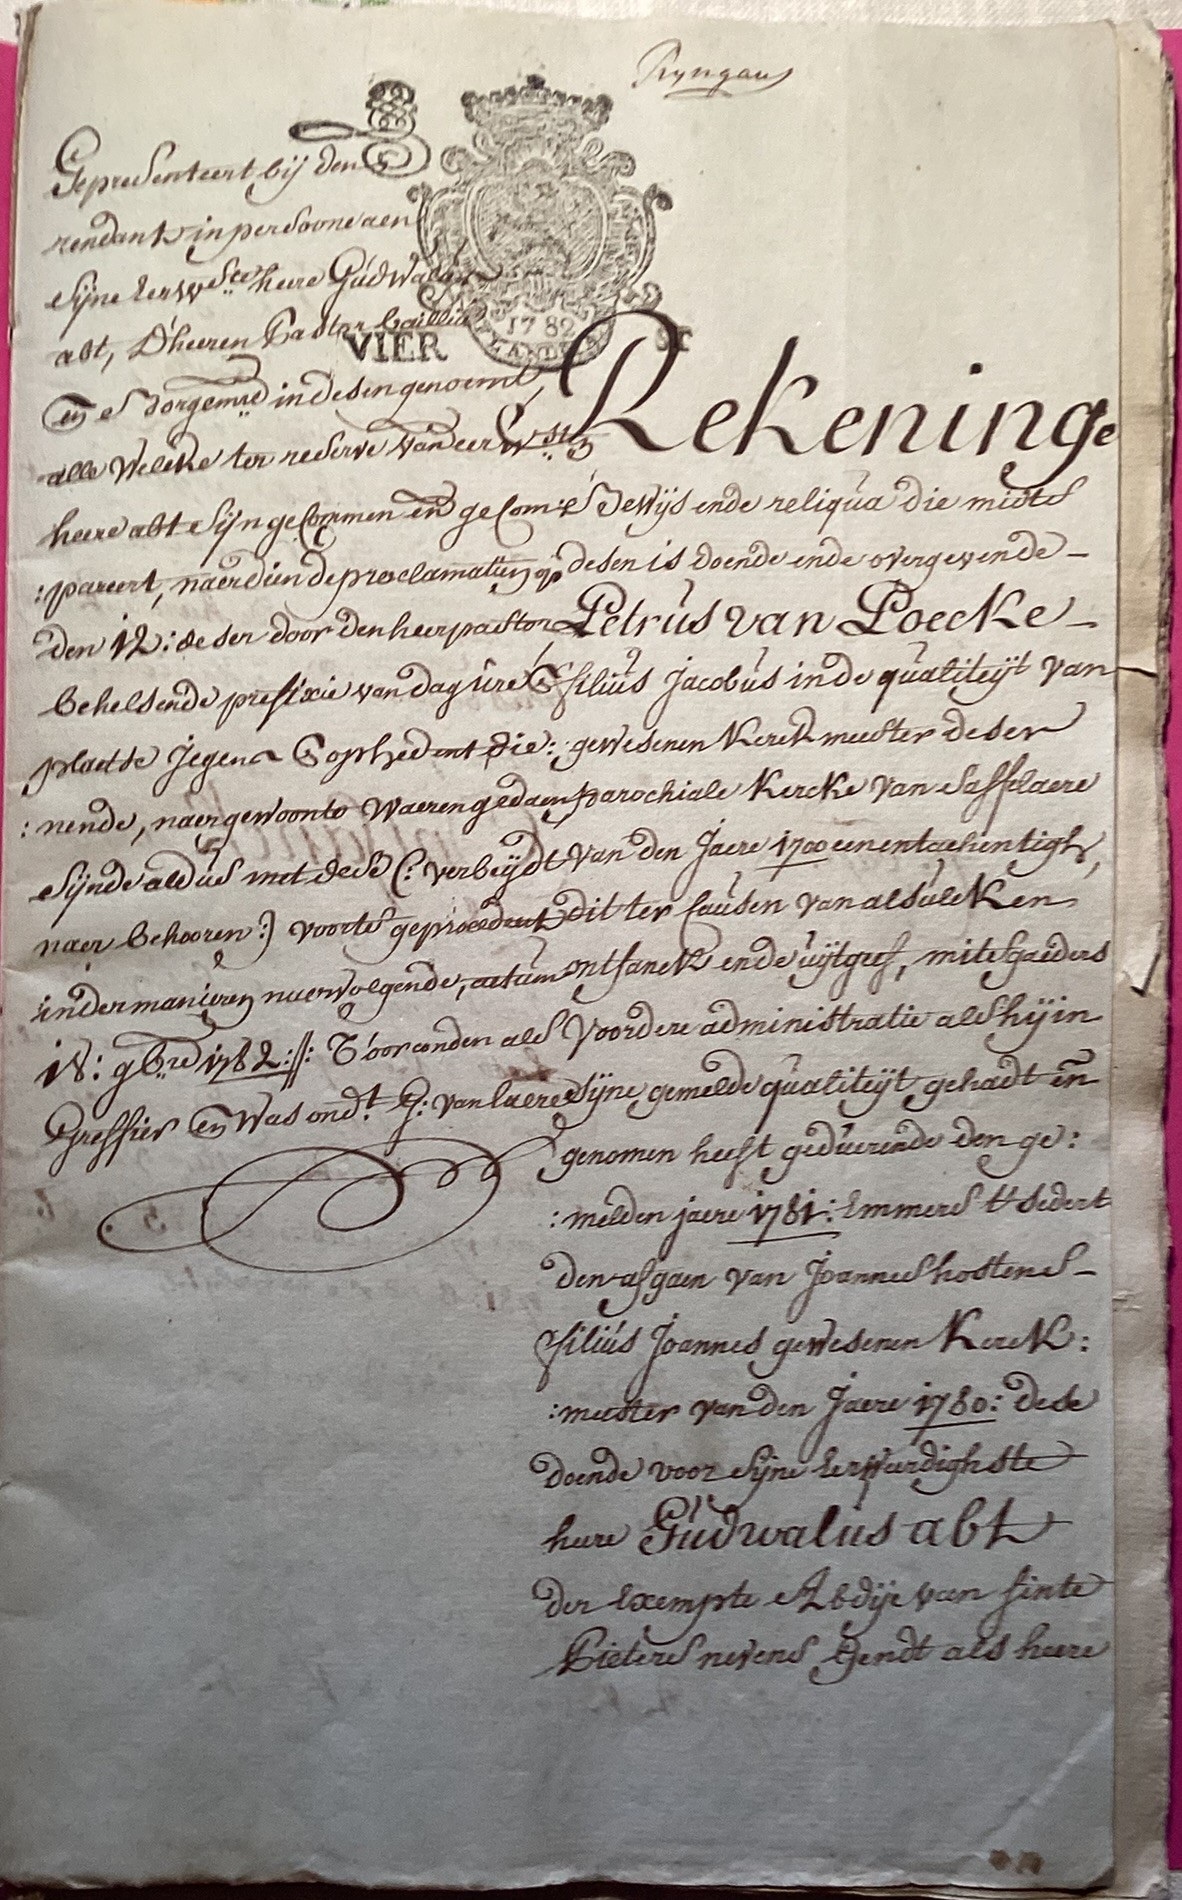 Ryngaut
Gepresenteert bij den
rendant in persoone aen
sijne Eerwste heere Gudwalus
abt, D'heeren Pastor bailliu
en Borgemre in desen genoemt,
alle Welcke ter reserve van eerwste
heere abt sijn geCommen en geCom:
:pareert, naer dien de proclamatien op
den 12: deser door den heer pastor
behelsende prefixie van dag ure en
plaetse Jegens T'opshedent die:
:nende, naer gewoonte Waeren gedaen,
sijnde aldus met dese C: verbeijdt
naer behooren:) voorts geprocedeert
inder manieren naervolgende, actum
18: 9bre 1782: T'oorconden als
Greffier en Was ondt. G: van laere
1782
VLANDER
VIER
ST
Rekeninge
Bewijs ende reliqua die midts
desen is doende ende overgevende
Petrus van Loecke
filius Jacobus in de qualiteijt van
gewesenen Kerckmeester deser
parochiale Kercke van Saffelaere
van den Jaere 1700 eenentachentigh,
dit ter Causen van alsulcken
ontfanck ende uijtgef, mitsgaeders
Voordere administratie als hij in
sijne gemelde qualiteijt gehadt en
genomen heeft geduerende den ge:
:melden jaere 1781: Emmers t'sedert
den afgaen van Joannes hostens
filius Joannes gewesenen Kerck:
:meester van den Jaere 1780: dese
doende voor sijne Eerweerdighste
heere Gudwalus abt
der Exempte Abdije van sinte
Pieters nevens Gendt als heere